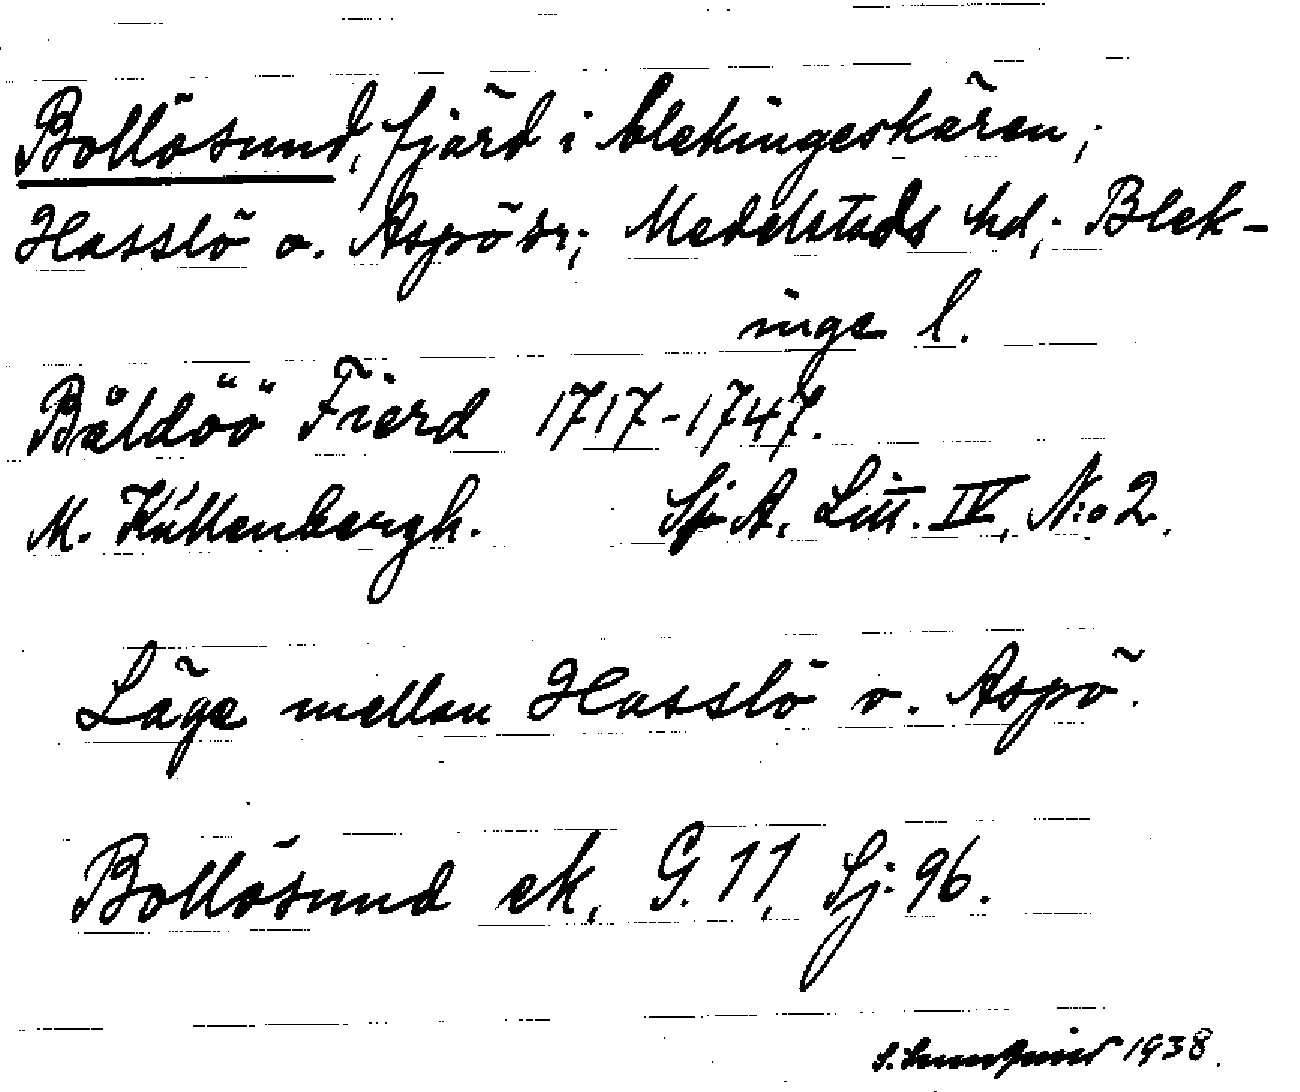 Bollösund, fjärd i blekingeskären;
Hasslö o. Aspö sr; Medelstads hd; Blek-
inge l.
Båldöö Fierd 1717-1747.
M. Küllenbergh. Sj. A. Litt. IV, N:o 2.
Läge mellan Hasslö o. Aspö.
Bollösund ek, G. 11, Sj: 96.
1938.